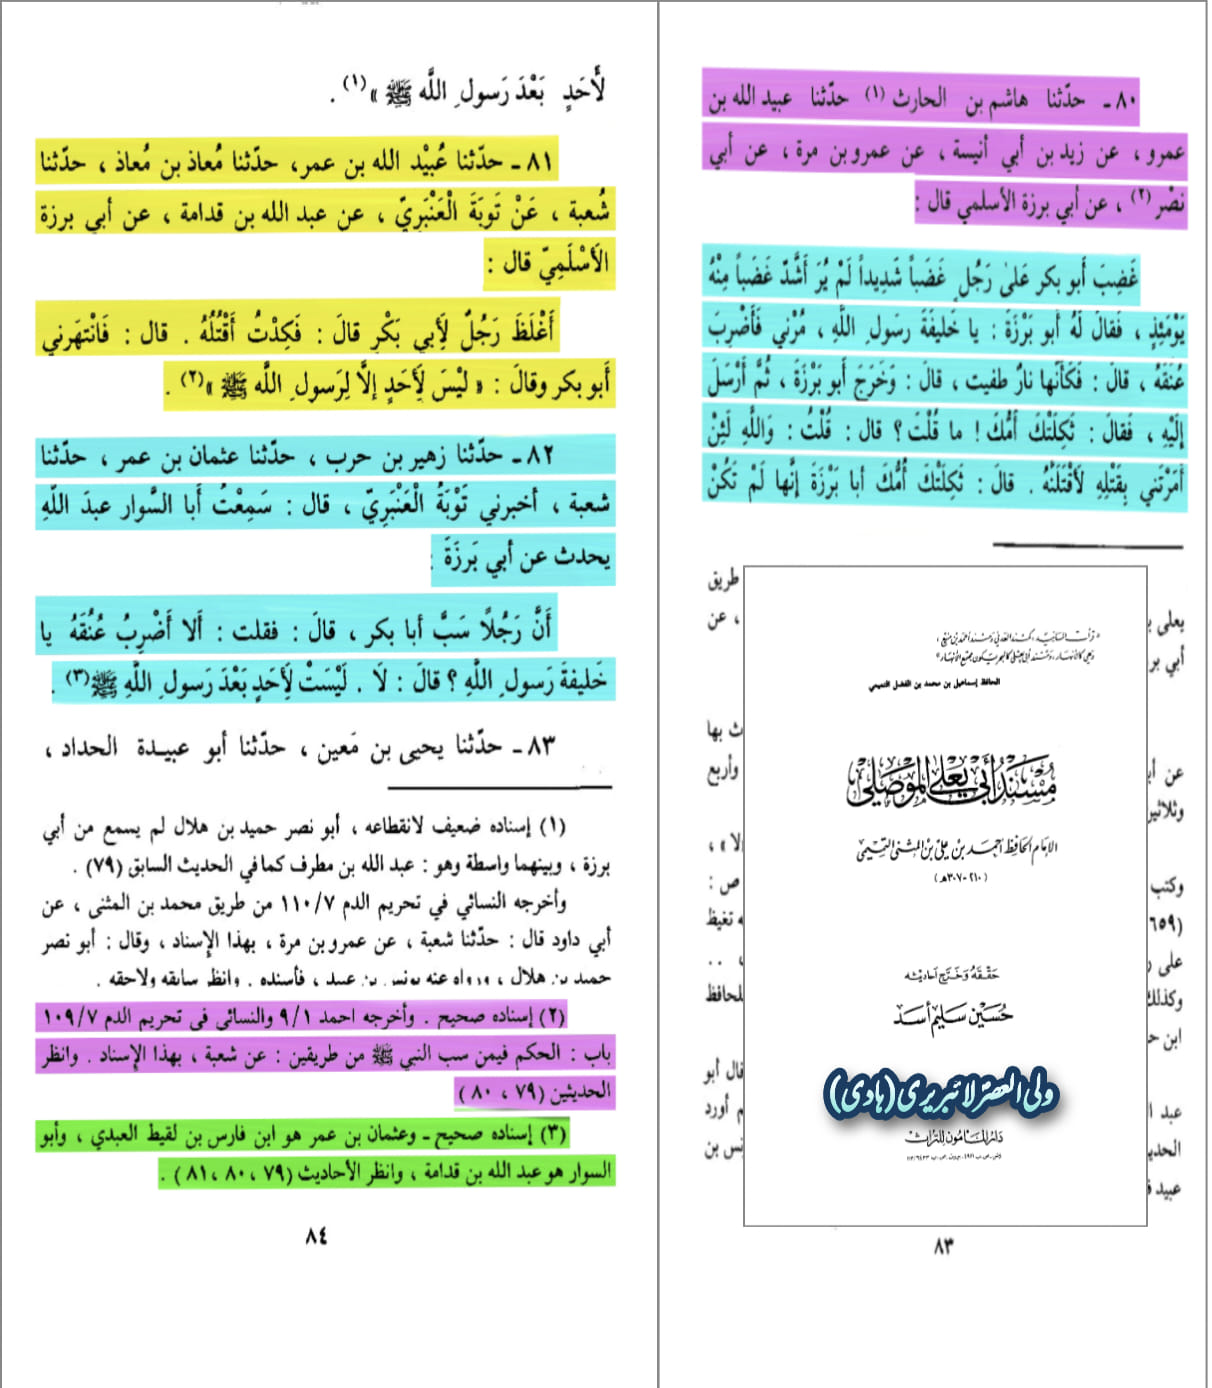 ٨٠ ـ حدّثنا هاشم بن الحارث (١) حدّثنا عبيد الله بن
عمرو ، عن زيد بن أبي أنيسة ، عن عمرو بن مرة ، عن أبي
نصْر (٢) ، عن أبي برزة الأسلمي قال :
غَضِبَ أَبو بكر عَلىٰ رَجُلٍ غَضَباً شَدِيداً لَمْ يُرَ أَشَّدَّ غَضَباً مِنْهُ
يَوْمَئِذٍ ، فَقالَ لَهُ أَبو بَرْزَةَ : يا خَليفَةَ رسَولِ اللَّهِ ، مُرْني فَأَضْرِبَ
عُنقَهُ ، قالَ : فَكَأَنَّها نارٌ طفيت ، قالَ : وَخَرَجَ أَبو بَرْزَةَ ، ثُمَّ أَرْسَلَ
إِلَيْهِ ، فَقالَ : ثَكِلَتْكَ أُمُّكَ ! ما قُلْتَ ؟ قال : قُلْتُ : وَاللَّهِ لَئِنْ
أَمَرْتَني بِقَتْلِهِ لأَقْتُلَنَّهُ . قالَ : ثَكِلَتْكَ أُمُّكَ أبا بَرْزَةَ إِنَّها لَمْ تَكُنْ
طريق
يعلى
، عن
أبي بر
ث بها
عن أبـ
وأربع
وثلاثين
لا » ،
وكتب
ص :
(٦٥٩
ه تغيظ
على ر
، . .
وكذلك
للحافظ
ابن حـ
قال أبو
عبد ا
م أورد
الحديـ
نس بن
عبيد ة
الحافظ إسماعيل بن محمد بن الفضل التميمي
مُسْنَدُ أَبي يَعْلى المَوْصِلي
الإمَام الحَافِظ أحمَد بن عَلي بن المثُنى التَّميمي
( ٢١٠ - ٣٠٧ هـ )
حَقّقَهُ وَخَرّجَ أحَاديثه
حُسَين سَليم أسَد
ولی العصر لائبریری (ہادی)
دَار المأمُون للتراث
٨٣
لأَحَدٍ بَعْدَ رَسولِ اللَّه ﷺ » (١) .
٨١ ـ حدّثنا عُبيْد الله بن عمر، حدّثنا مُعاذ بن مُعاذ ، حدّثنا
شُعبة ، عَنْ تَوبَةَ الْعَنْبَرِيّ ، عن عبد الله بن قدامة ، عن أبي برزة
الأَسْلَمِيّ قال :
أَغْلَظَ رَجُلٌ لِأَبي بَكْرٍ قالَ : فَكِدْتُ أَقْتُلُهُ . قال : فَانْتَهَرني
أَبو بكر وقالَ : « لَيْسَ لأَحَدٍ إلَّا لِرَسولِ اللَّه ﷺ »(٢) .
٨٢ ـ حدّثنا زهير بن حرب ، حدّثنا عثمان بن عمر ، حدّثنا
شعبة ، أخبرني تَوْبَةُ الْعَنْبَرِيّ ، قال : سَمِعْتُ أَبا السَّوار عبدَ اللّهِ
يحدث عن أبي بَرزَةَ :
أَنَّ رَجُلًا سَبَّ أبا بكر ، قالَ : فقلت : أَلا أَضْرِبُ عُنُقَهُ يا
خَليفةَ رَسولِ اللَّهِ ؟ قالَ : لَا . لَيْسَتْ لأَحَدٍ بَعْدَ رَسولِ اللَّهِ ﷺ(٣) .
٨٣ ـ حدّثنا يحيى بن مَعين ، حدّثنا أبو عبيـدة الحداد ،
(١) إسناده ضعيف لانقطاعه ، أبو نصر حميد بن هلال لم يسمع من أبي
برزة ، وبينهما واسطة وهو : عبد الله بن مطرف كما في الحديث السابق (٧٩) .
وأخرجه النسائي في تحريم الدم ١١٠/٧ من طريق محمد بن المثنى ، عن
أبي داود قال : حدّثنا شعبة ، عن عمرو بن مرة ، بهذا الإسناد ، وقال : أبو نصر
حميد بن هلال ، ورواه عنه يونس بن عبيد ، فأسنده . وانظر سابقه ولاحقه .
(٢) إسناده صحيح . وأخرجه احمد ٩/١ والنسائي في تحريم الدم ١٠٩/٧
باب : الحكم فيمن سب النبي ﷺ من طريقين : عن شعبة ، بهذا الإسناد . وانظر
الحديثين (٧٩ ، ٨٠ )
(٣) إسناده صحيح ـ وعثمان بن عمر هو ابن فارس بن لقيط العبدي ، وأبو
السوار هو عبد الله بن قدامة ، وانظر الأحاديث (٧٩ ، ٨٠ ، ٨١ ) .
٨٤